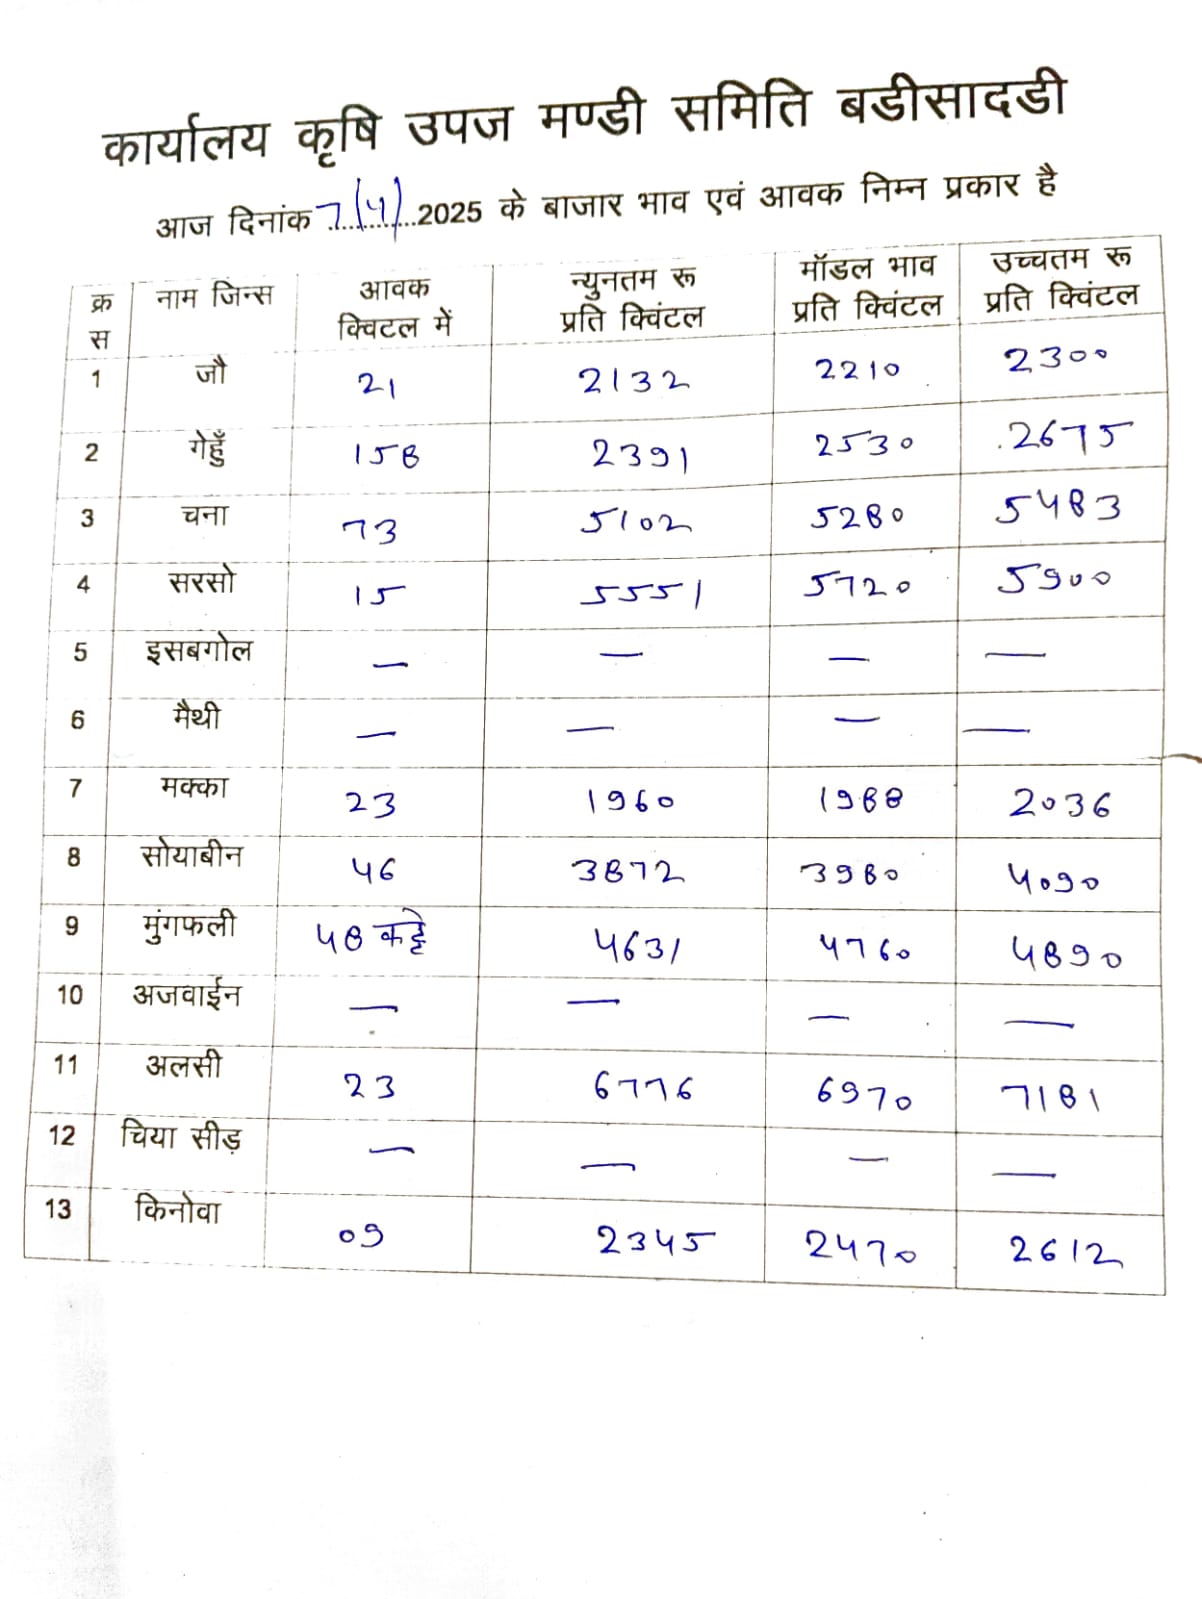 कार्यालय कृषि उपज मण्डी समिति बडीसादडी
आज दिनांक 7/4/2025 के बाजार भाव एवं आवक निम्न प्रकार है
क्र स नाम जिन्स आवक क्विटल में न्युनतम रू प्रति क्विंटल मॉडल भाव प्रति क्विंटल उच्चतम रू प्रति क्विंटल
1 जौ 21 2132 2210 2300
2 गेहुँ 158 2391 2530 2675
3 चना 73 5102 5280 5483
4 सरसो 15 5551 5720 5900
5 इसबगोल — — — —
6 मैथी — — — —
7 मक्का 23 1960 1988 2036
8 सोयाबीन 46 3872 3980 4090
9 मुंगफली 48 कट्टे 4631 4760 4890
10 अजवाईन — — — —
11 अलसी 23 6776 6970 7181
12 चिया सीड़ — — — —
13 किनोवा 09 2345 2470 2612